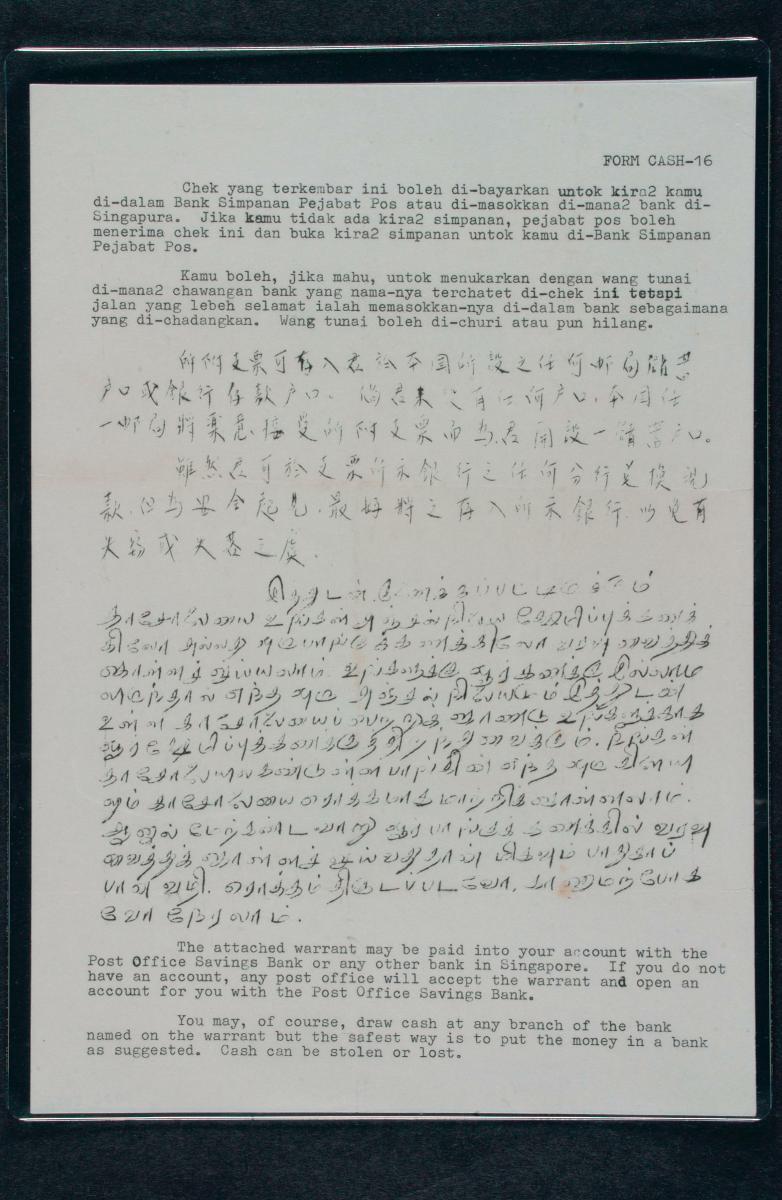 FORM CASH-16
Chek yang terkembar ini boleh di-bayarkan untok kira2 kamu
di-dalam Bank Simpanan Pejabat Pos atau di-masokkan di-mana2 bank di-
Singapura. Jika kamu tidak ada kira2 simpanan, pejabat pos boleh
menerima chek ini dan buka kira2 simpanan untok kamu di-Bank Simpanan
Pejabat Pos.
Kamu boleh, jika mahu, untok menukarkan dengan wang tunai
di-mana2 chawangan bank yang nama-nya terchatet di-chek ini tetapi
jalan yang lebeh selamat ialah memasokkan-nya di-dalam bank sebagaimana
yang di-chadangkan. Wang tunai boleh di-churi atau pun hilang.
所附支票可存入君於本国所設之任何邮局储蓄
户口或銀行存款户口。倘君未有任何户口,本国任
一邮局將樂意接受所附支票而为君開設一储蓄户口。
雖然君可於支票所示銀行之任何分行兑换現
款,但为安全起見,最好將之存入所示銀行,以免有
失窃或失落之虞.
இத்துடன் இணைக்கப்பட்டிருக்கும்
காசோலையை உங்கள் அஞ்சல் நிலைய சேமிப்புக் கணக்
கிலோ அல்லது
செய்யலாம். உங்களுக்கு ஓர் கணக்கு இல்லாம
லிருந்தால் எந்த ஒரு அஞ்சல் நிலையமும் இத்துடன்
உள்ள காசோலையைப் பெற்றுக் கொண்டு உங்களுக்காக
ஓர் சேமிப்புக் கணக்கு திறந்து வைக்கும். நீங்கள்
காசோலையில் கண்டுள்ள பாங்கின் எந்த ஒரு கிளையி
லும் காசோலையை ரொக்கமாக மாற்றிக் கொள்ளலாம்.
ஆனால் மேற்கண்டவாறு ஓர் பாங்குக் கணக்கில் வரவு
வைத்துக் கொள்ளச் செய்வதுதான் மிகவும் பாதுகாப்
பான வழி. ரொக்கம் திருடப்படவோ, காணாமற்போக
வோ நேரலாம்.
The attached warrant may be paid into your account with the
Post Office Savings Bank or any other bank in Singapore. If you do not
have an account, any post office will accept the warrant and open an
account for you with the Post Office Savings Bank.
You may, of course, draw cash at any branch of the bank
named on the warrant but the safest way is to put the money in a bank
as suggested. Cash can be stolen or lost.